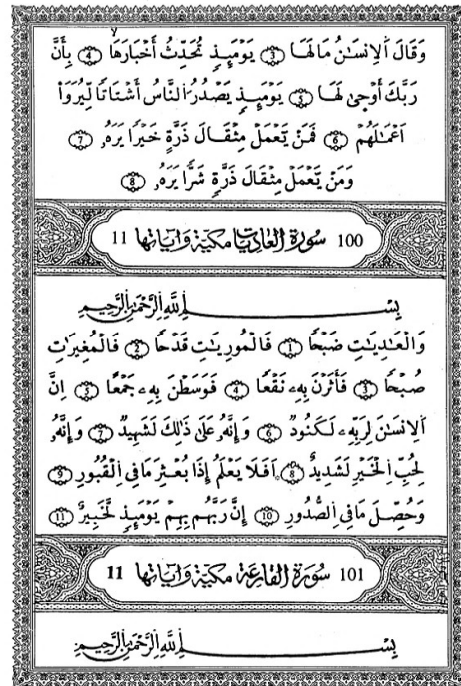 وَقَالَ اَ۬لِانسَٰنُ مَا لَهَا 3 يَوْمَئِذٖ تُحَدِّثُ أَخْبَارَهَا 4 بِأَنَّ
رَبَّكَ أَوْح۪ىٰ لَهَا 5 يَوْمَئِذٖ يَصْدُرُ اُ۬لنَّاسُ أَشْتَاتاٗ لِّيُرَوَاْ
اَعْمَٰلَهُمْ 6 فَمَنْ يَّعْمَلْ مِثْقَالَ ذَرَّةٍ خَيْراٗ يَرَهُۥ 7
وَمَنْ يَّعْمَلْ مِثْقَالَ ذَرَّةٖ شَرّاٗ يَرَهُۥ 8
100 سُورَةُ العَادِيَاتِ مَكِّيَّة وَءَايَاتُهَا 11
بِسْمِ اِ۬للَّهِ اِ۬لرَّحْمَٰنِ اِ۬لرَّحِيمِ
وَالْعَٰدِيَٰتِ ضَبْحاٗ 1 فَالْمُورِيَٰتِ قَدْحاٗ 2 فَالْمُغِيرَٰتِ
صُبْحاٗ 3 فَأَثَرْنَ بِهِۦ نَقْعاٗ 4 فَوَسَطْنَ بِهِۦ جَمْعاً 5 اِنَّ
اَ۬لِانسَٰنَ لِرَبِّهِۦ لَكَنُودٞ 6 وَإِنَّهُۥ عَلَىٰ ذَٰلِكَ لَشَهِيدٞ 7 وَإِنَّهُۥ
لِحُبِّ اِ۬لْخَيْرِ لَشَدِيدٌ 8 اَفَلَا يَعْلَمُ إِذَا بُعْثِرَ مَا فِے اِ۬لْقُبُورِ 9
وَحُصِّلَ مَا فِے اِ۬لصُّدُورِ 10 إِنَّ رَبَّهُم بِهِمْ يَوْمَئِذٖ لَّخَبِيرٌ 11
101 سُورَةُ القَارِعَةِ مَكِّيَّة وَءَايَاتُهَا 11
بِسْمِ اِ۬للَّهِ اِ۬لرَّحْمَٰنِ اِ۬لرَّحِيمِ